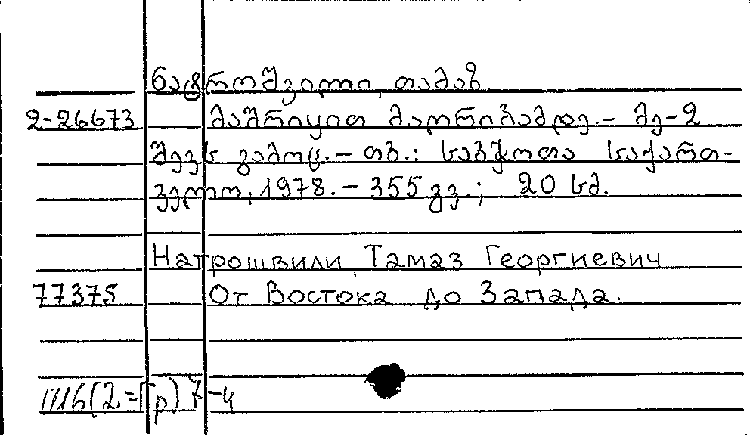 ნატროშვილი, თამაზ
2-26673 მაშრიყით მაღრიბამდე. – მე-2
შევს. გამოც. – თბ.: საბჭოთა საქართ-
ველო, 1978. – 355 გვ.; 20 სმ.
Натрошвили, Тамаз Георгиевич
77375 От Востока до Запада.
Ш6(2=Гр)7-4